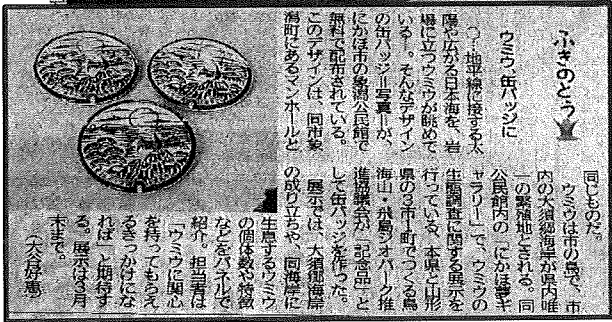 ふきのとう
ウミウ、缶バッジに
○…地平線に接する太
陽や広がる日本海を、岩
場に立つウミウが眺めて
いる―。そんなデザイン
の缶バッジ=写真=が、
にかほ市の象潟公民館で
無料で配布されている。
このデザインは、同市象
潟町にあるマンホールと
同じものだ。
ウミウは市の鳥で、市
内の大須郷海岸が県内唯
一の繁殖地とされる。同
公民館内の「にかほ夢ギ
ャラリー」で、ウミウの
生態調査に関する展示を
行っている、本県と山形
県の3市1町でつくる鳥
海山・飛島ジオパーク推
進協議会が「記念品」と
して缶バッジを作った。
展示では、大須郷海岸
の成り立ちや、同海岸に
生息するウミウ
の個体数や特徴
などをパネルで
紹介。担当者は
「ウミウに関心
を持ってもらえ
るきっかけにな
れば」と期待す
る。展示は3月
末まで。
(大谷好恵)